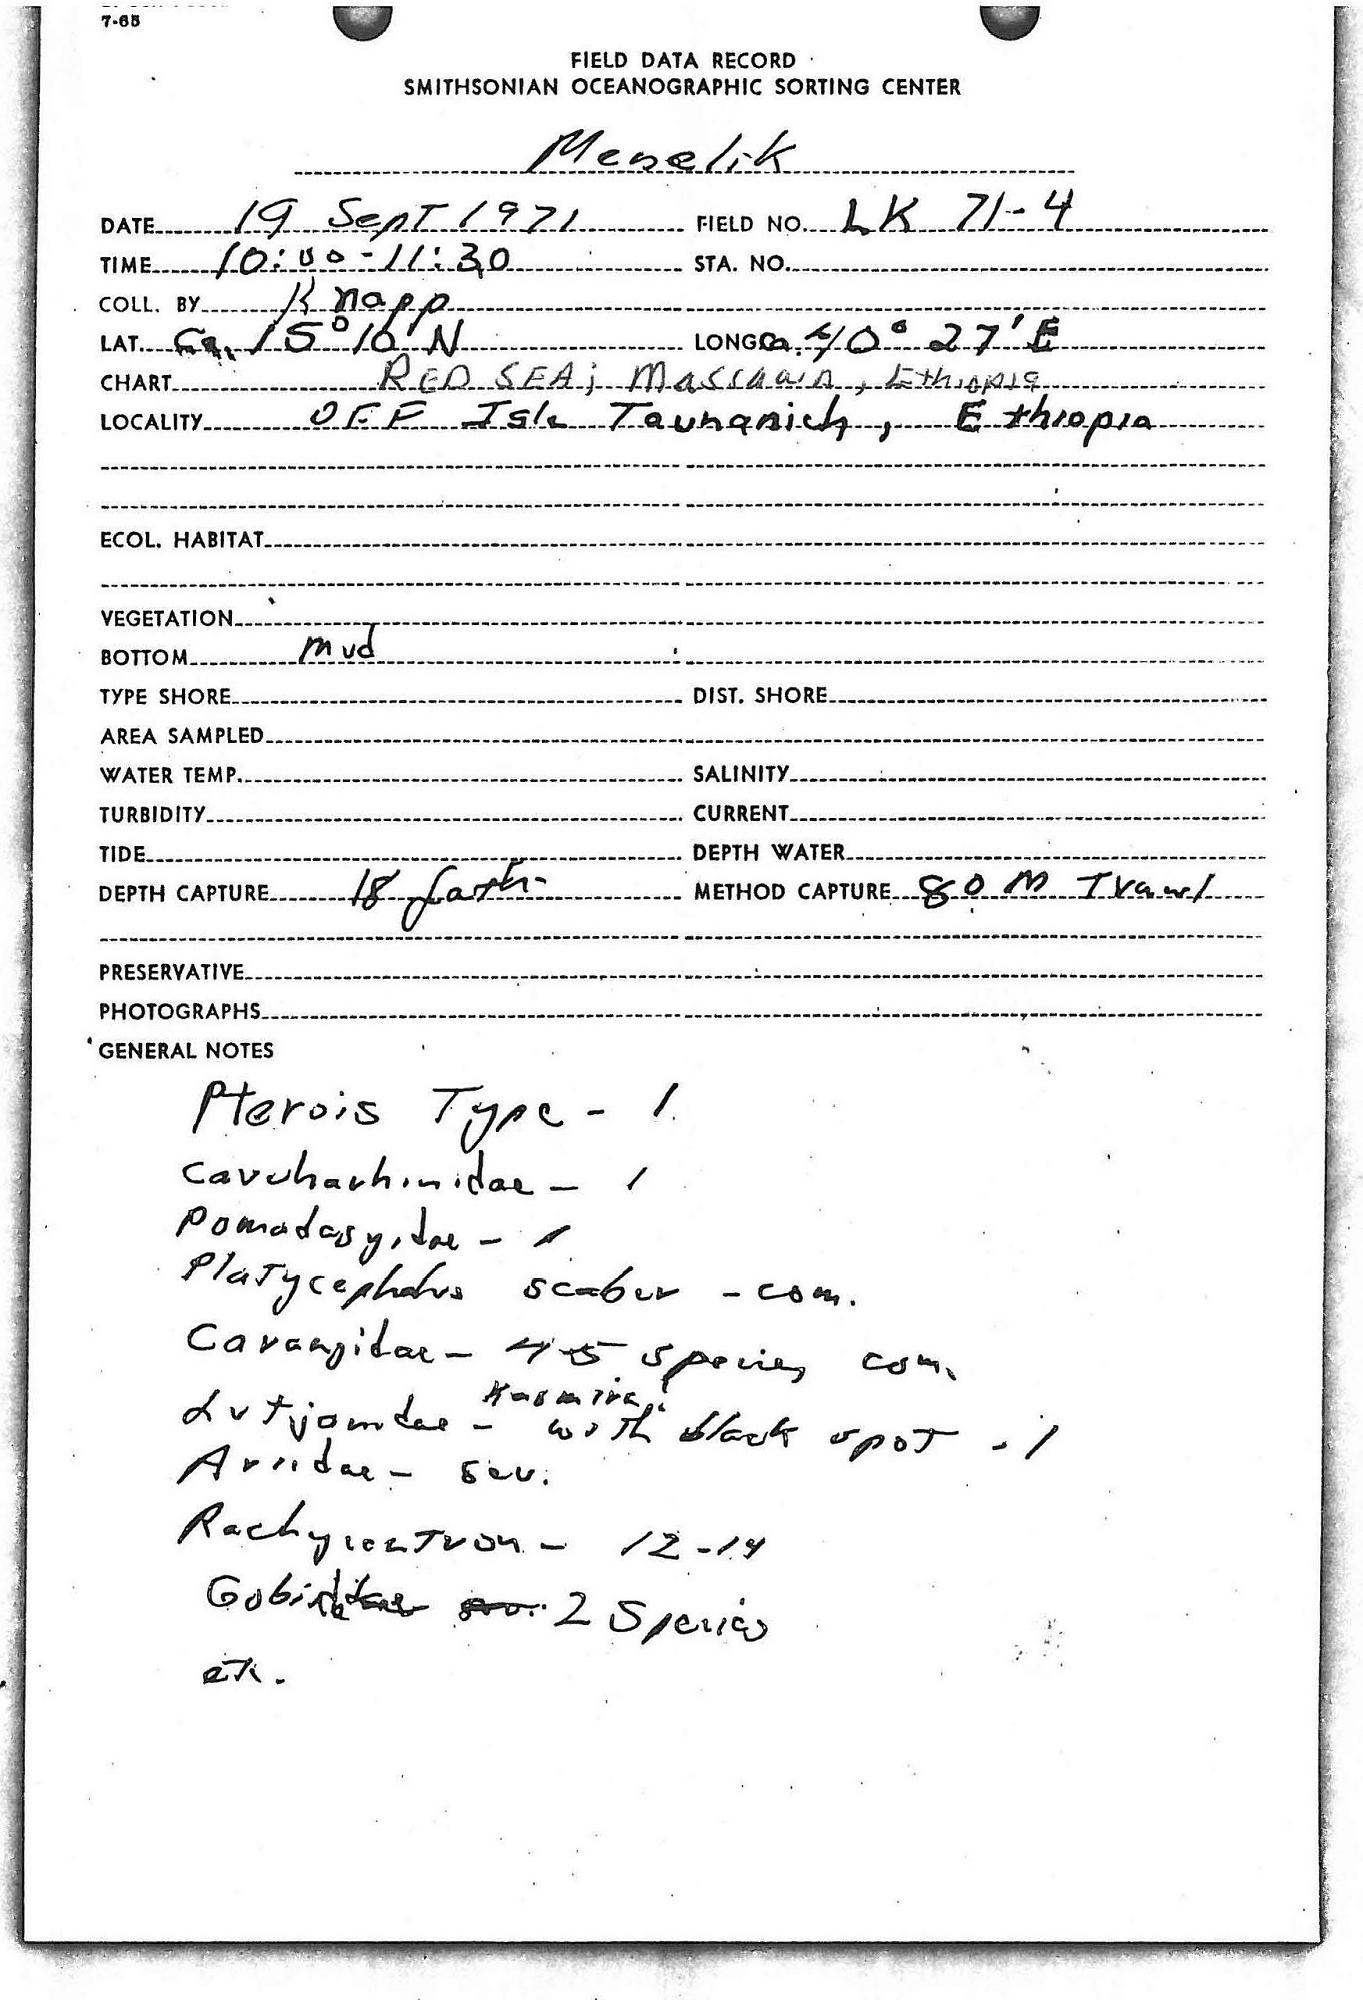 7-65
FIELD DATA RECORD
SMITHSONIAN OCEANOGRAPHIC SORTING CENTER
Menelik
DATE 19 Sept 1971 FIELD NO. LK 71-4
TIME 10:00-11:30 STA. NO.
COLL. BY Knapp
LAT. Ca. 15° 10' N LONG. Ca. 40° 27' E
CHART RED SEA; Massawa, Ethiopia
LOCALITY OFF Isle Ethiopia
ECOL. HABITAT
VEGETATION
BOTTOM mud
TYPE SHORE DIST. SHORE
AREA SAMPLED
WATER TEMP. SALINITY
TURBIDITY CURRENT
TIDE DEPTH WATER
DEPTH CAPTURE 18 fath. METHOD CAPTURE 80 M Trawl
PRESERVATIVE
PHOTOGRAPHS
GENERAL NOTES
Pterois Type - 1
Carcharhinidae - 1
Pomadasyidae - 1
Platycephalus scaber - com.
Carangidae - 4-5 species com.
Kasmira?
Lutjanidae - with black spot - 1
Ariidae - sev.
Rachycentron - 12-14
Gobiidae 2 Species
etc.